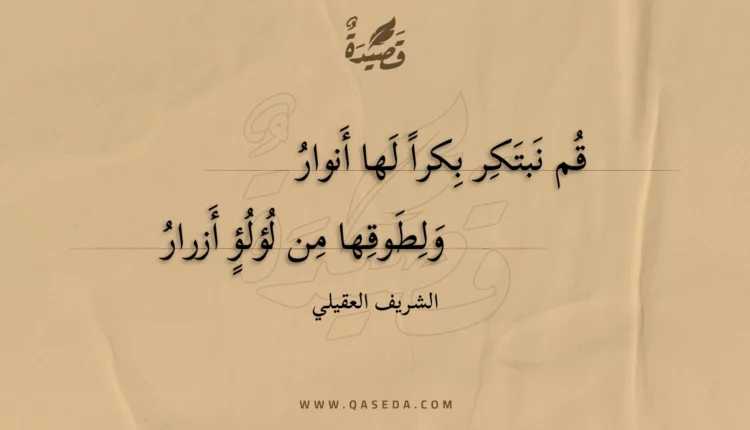 قَصِيدَةٌ
قُم نَبتَكِر بِكراً لَها أَنوارُ
وَلِطَوقِها مِن لُؤلُؤٍ أَزرارُ
الشريف العقيلي
WWW.QASEDA.COM